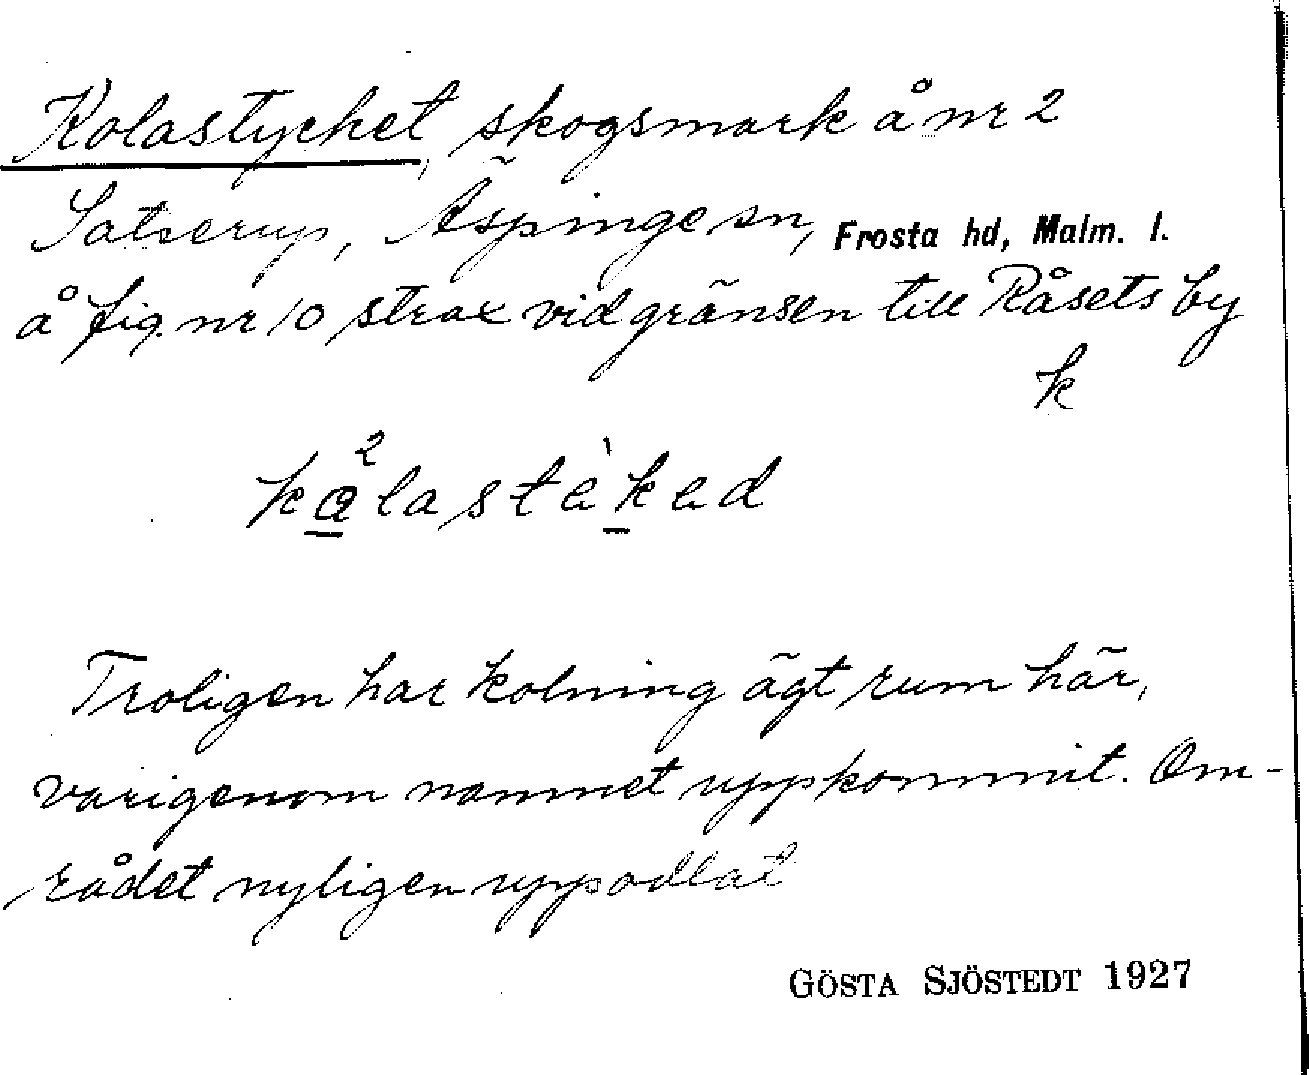 Kolastycket, skogsmark å nr 2
Satserup, Äspinge sn, Frosta hd, Malm. l.
å fig. nr 10 strax vid gränsen till Råsets by
k
Troligen har kolning ägt rum här,
varigenom namnet uppkommit. Om-
rådet nyligen uppodlat
GÖSTA SJÖSTEDT 1927